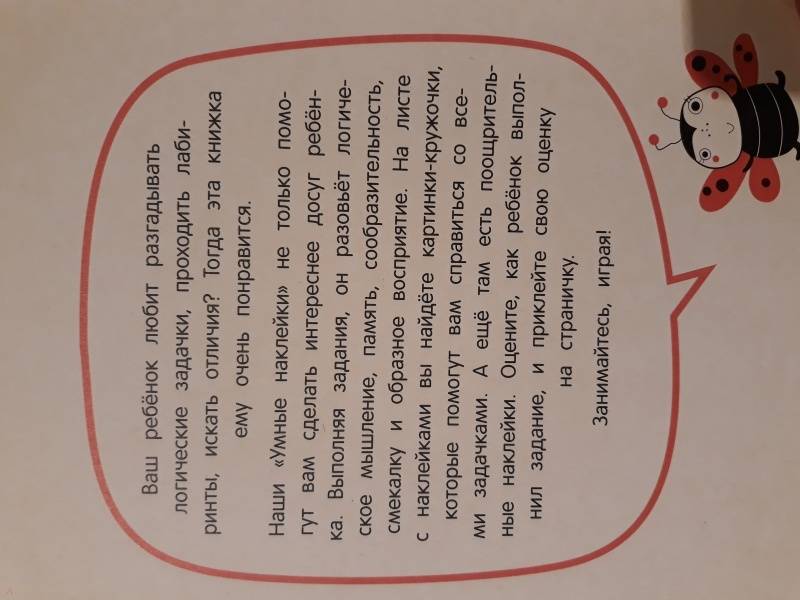 Ваш ребёнок любит разгадывать
логические задачки, проходить лаби-
ринты, искать отличия? Тогда эта книжка
ему очень понравится.
Наши «Умные наклейки» не только помо-
гут вам сделать интереснее досуг ребён-
ка. Выполняя задания, он разовьёт логиче-
ское мышление, память, сообразительность,
смекалку и образное восприятие. На листе
с наклейками вы найдёте картинки-кружочки,
которые помогут вам справиться со все-
ми задачками. А ещё там есть поощритель-
ные наклейки. Оцените, как ребёнок выпол-
нил задание, и приклейте свою оценку
на страничку.
Занимайтесь, играя!